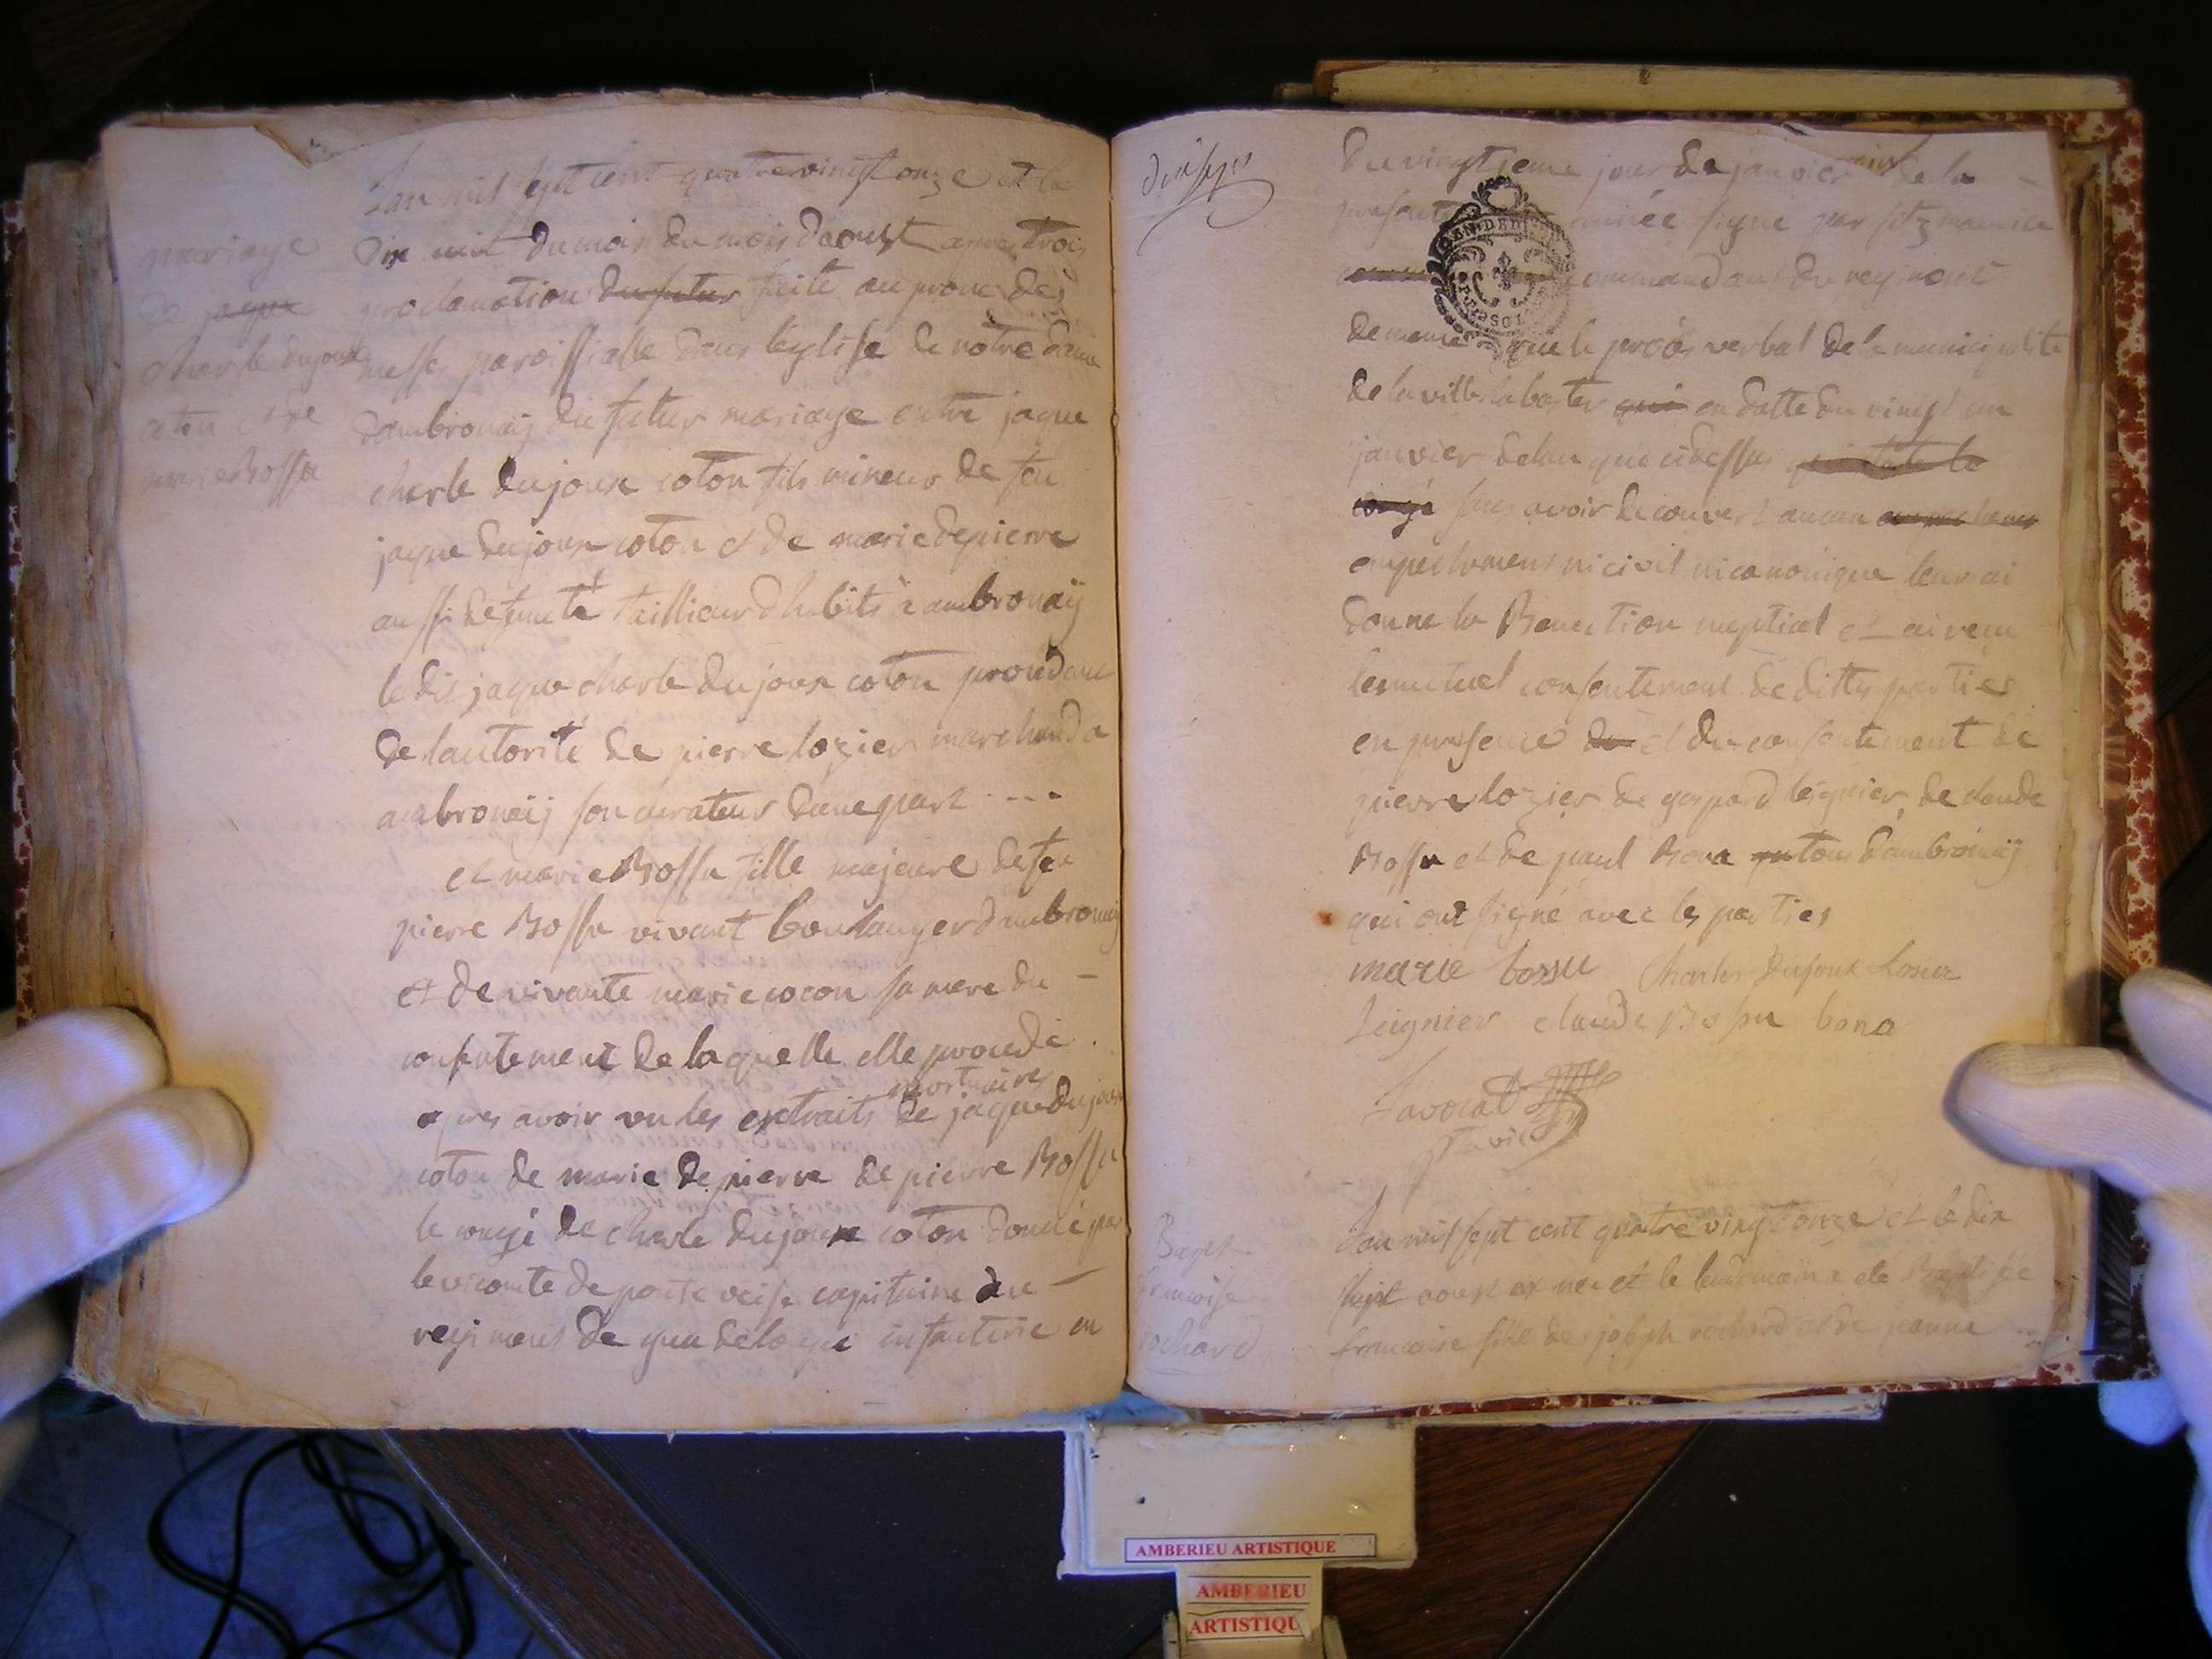 mariage
de jaque
charle dujoux
coton et de
marie Bossu
Lan mil sept cent quatrevingt onze et le
dix uit du mois du mois daoust apres trois
proclamation du futur faite au prone des
messes paroissialle dans léglise de notre dame
dambronaÿ du futur mariage entre jaque
charle dujoux coton fils mineur de feu
jaque dujoux coton et de marie depierre
aussi defuncte taillieur d habits à ambronaÿ
le dit jaque charle dujoux coton procedant
de lautorité de pierre lozier marchand a
ambronaÿ son curateur dune part
et marie Bossu fille majeure de feu
pierre Bossu vivant boulanger dambronaÿ
et de vivante marie cocon sa mere du
consentement de laquelle elle procede
mortuaires
apres avoir vu les extraits de jaque dujoux
coton de marie depierre de pierre Bossu
le congé de charle dujoux coton donné par
le vicomte de capitaine au
regiment de guadeloupe infanterie en
du vingtieme jour de janvier de la
presente année signé par fitz maurice
commandant du regiment
de meme que le procés verbal de la municipalité
de la ville en datte du vingt un
janvier delan que cidessus
congé sans avoir decouvert aucun
empechement ni civil ni canonique leur ai
donne la Benection nuptial et ai recu
le mutuel consentement de dittes parties
en presence de et du consentement de
pierre lozier de gaspard leignier de claude
Bossu et de paul Bona tous dambronaÿ
qui ont signé avec les parties
marie bossu Charles Dujoux Losier
Leignier claude Bossu bona
Lavocat
vic
Bapt.
francoise
rochard
Lan mil sept cent quatre vingt onze et le dix
sept aoust est nee et le lendemain a eté Baptisée
francoise fille de joseph rochard et de jeanne
AMBERIEU ARTISTIQUE
AMBERIEU
ARTISTIQU